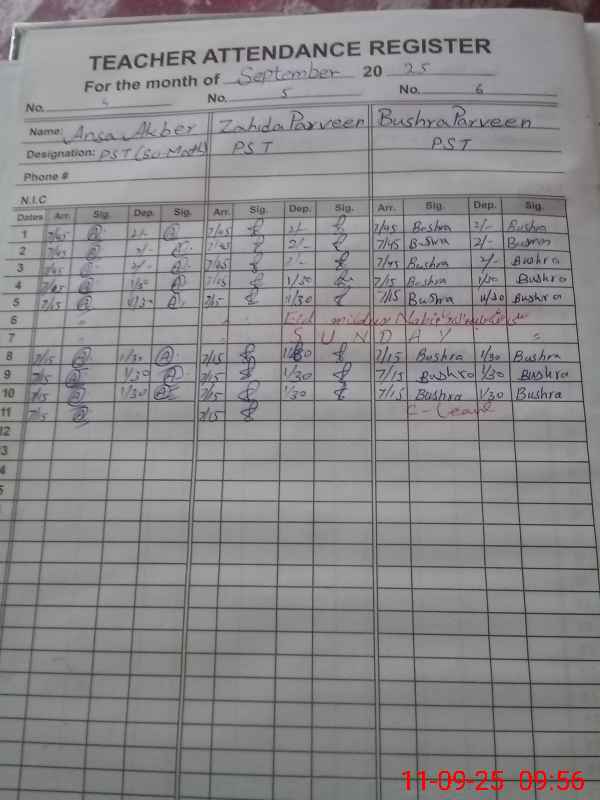 TEACHER ATTENDANCE REGISTER
For the month of September 20 25
No. 4 No. 5 No. 6
Name: Ansa Akber Zahida Parveen Bushra Parveen
Designation: PST (Sci-Math) PST PST
Phone #
N.I.C
Dates Arr. Sig. Dep. Sig. Arr. Sig. Dep. Sig. Arr. Sig. Dep. Sig.
1 7/45 A 2/- A 7/45 2/- 7/45 Bushra 2/- Bushra
2 7/45 A 2/- A 7/45 2/- 7/45 Bushra 2/- Bushra
3 7/45 A 2/- A 7/45 2/- 7/45 Bushra 2/- Bushra
4 7/45 A 1/30 A 7/15 1/30 7/15 Bushra 1/30 Bushra
5 7/15 A 1/30 A 7/15 1/30 7/15 Bushra Bushra
6 Eid
7 SUNDAY
8 7/15 A 1/30 A 7/15 1/30 7/15 Bushra 1/30 Bushra
9 7/15 A 1/30 A 7/15 1/30 7/15 Bushra 1/30 Bushra
10 7/15 A 1/30 A 7/15 1/30 7/15 Bushra 1/30 Bushra
11 7/15 A 7/15 C-Leave
12
3
4
5
11-09-25 09:56